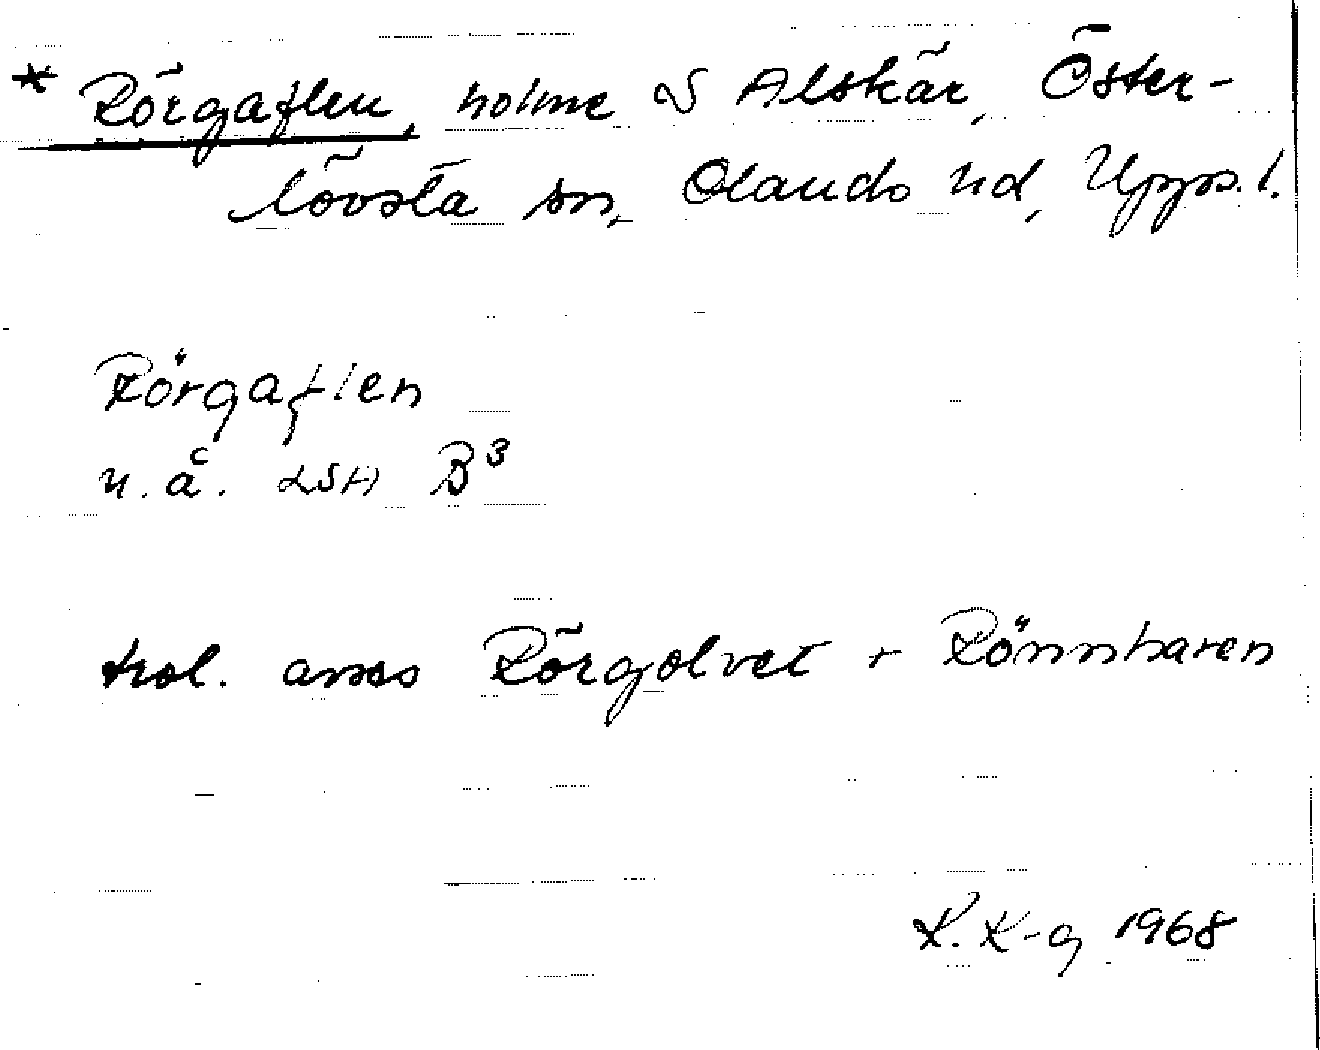 * Rörgaflen, holme S Alskär, Öster-
lövsta sn, Olands hd, Upps. l.
Rörgaflen
u.å. LSA B3
trol. anses Rörgolvet + Rönnharen
K. K-g 1968